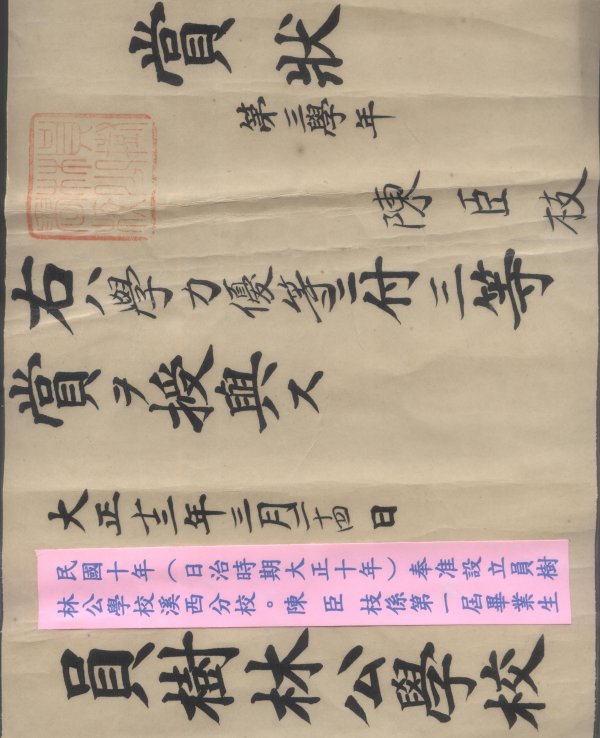 賞狀
第三學年
陳臣枝
右ハ學力優等ニ付二等
賞ヲ授與ス
大正十三年三月二十四日
民國十年（日治時期大正十年）奉准設立員樹
林公學校溪西分校。陳臣枝係第一屆畢業生
員樹林公學校